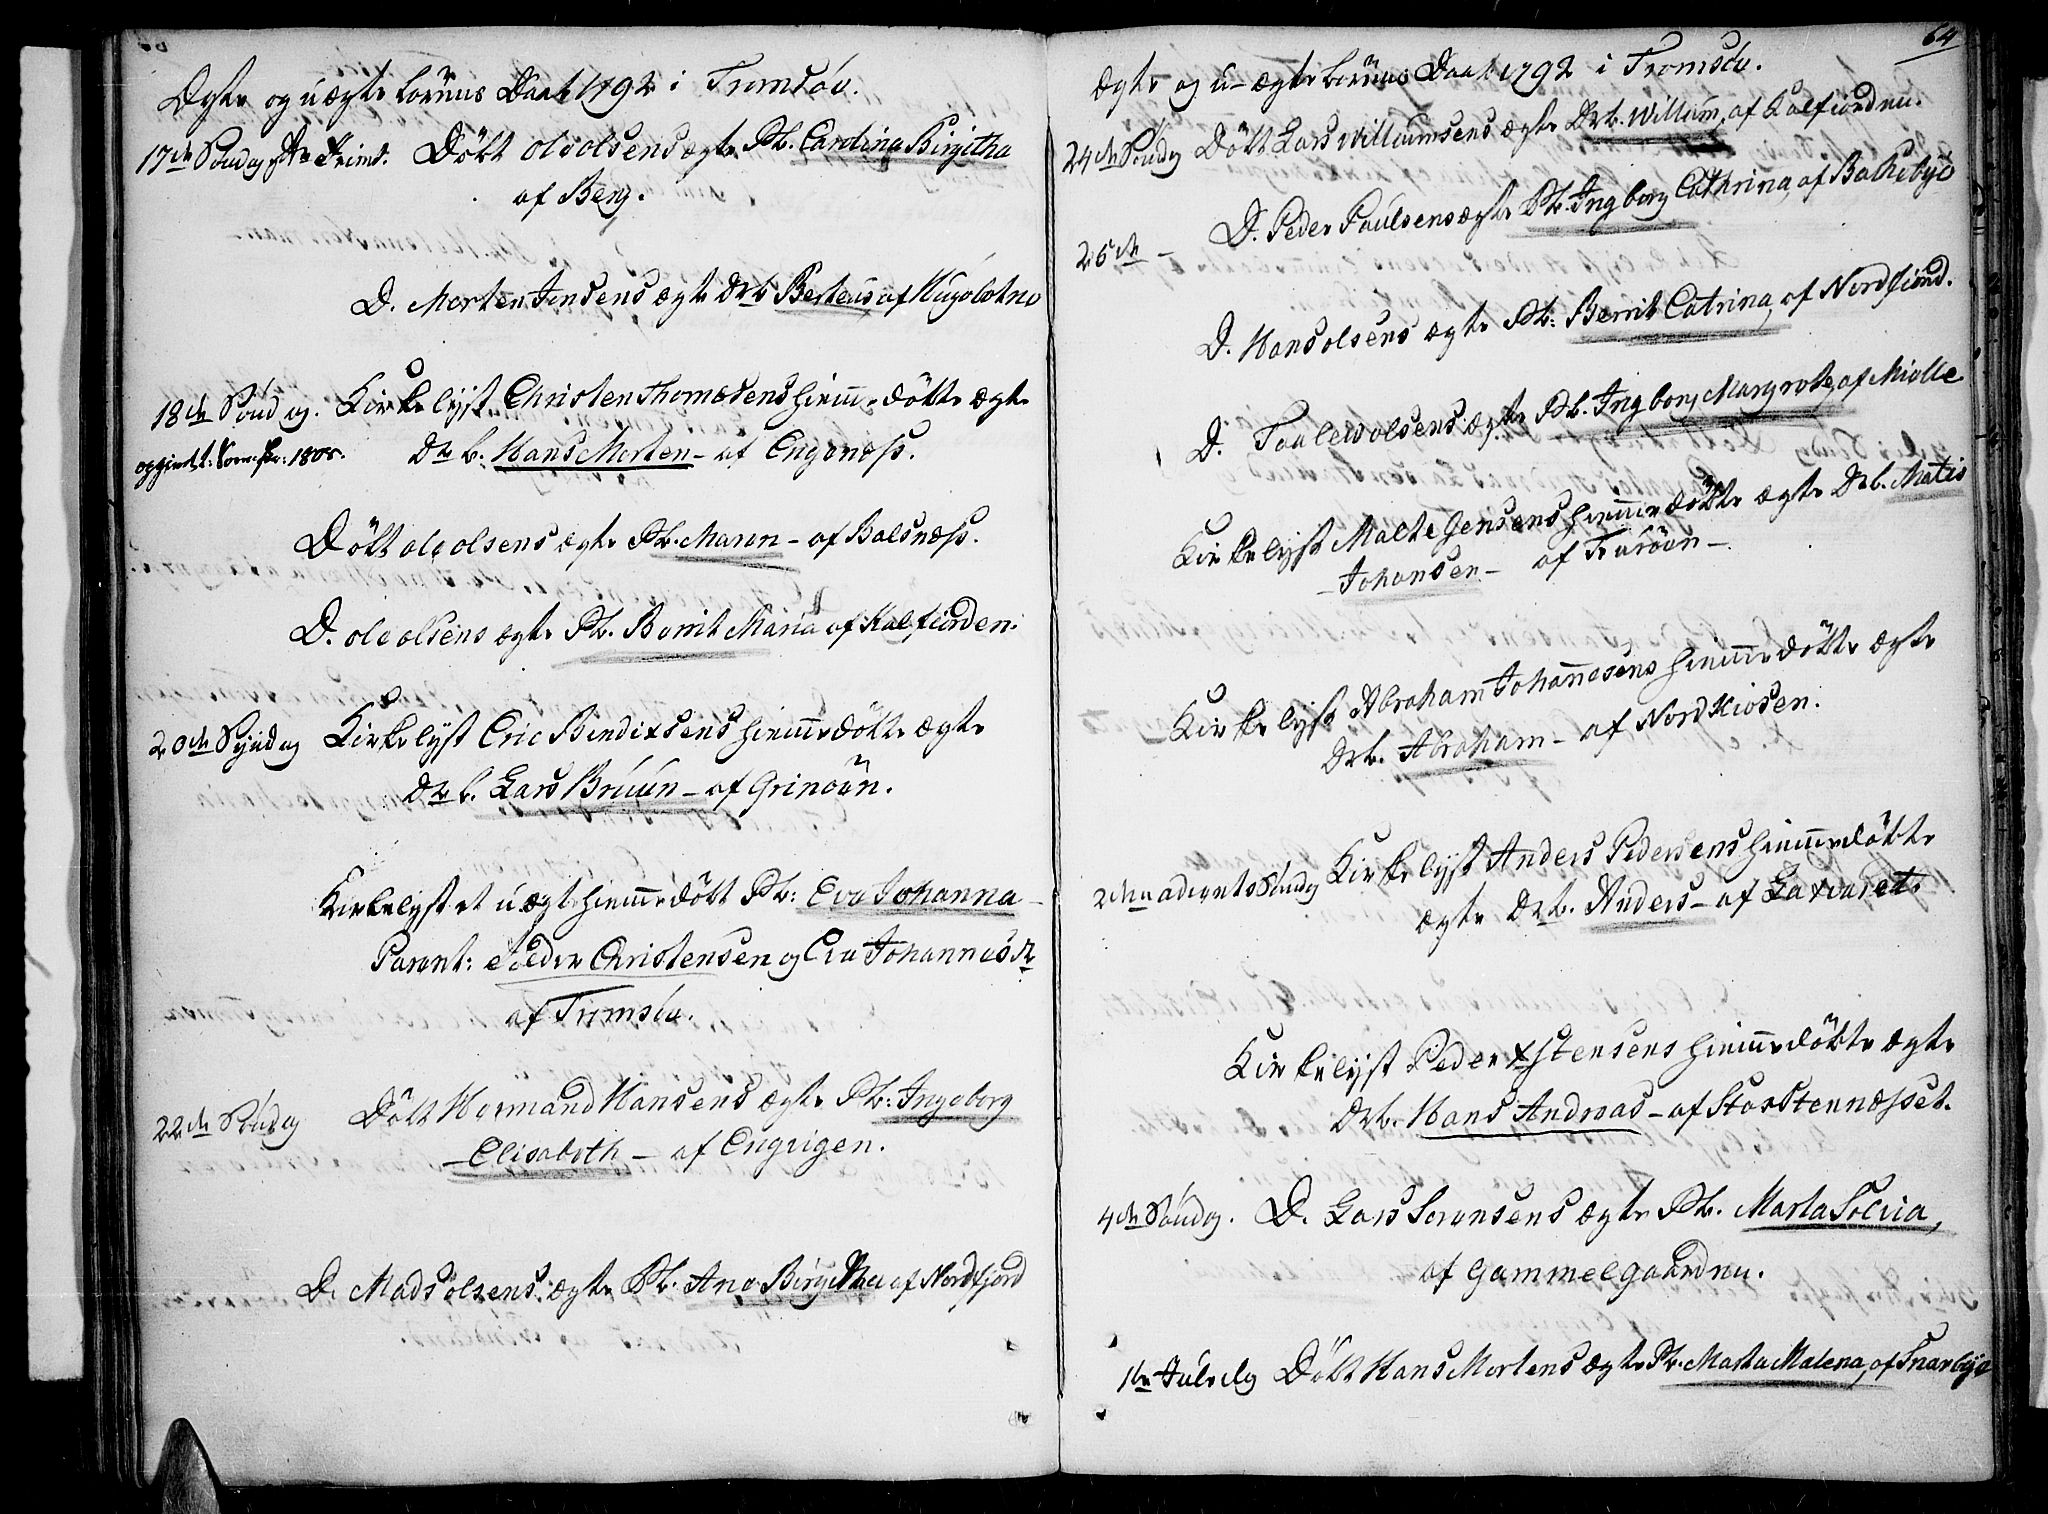 Ægte og uægte børnes Daab 1792 i Tromsöe.
17de Söndag Trinit. Döbt Ole Olsens ægte Pb. Carolina Birgitha
af Berg.
D. Morten Jensens ægte Drb Berteus af
18de Söndag. Kirkelyst Christen Thomesens hiemmedöbte ægte
Dr b. Hans Morten – af Engenæss.
Döbt ole olsens ægte Pb. Maren – af Balsnæss.
D. ole olsens ægte Pb. Berrit Maria af Kalfiorden.
20de Söndag Kirkelyst Eric Bendixsens hiemmedöbte ægte
Dr b. Lars Bruun – af Grinöen.
Kirkelyst et uægte hiemmedöbt Pb: Eva Johanna –
Parent: Peder Christensen og Eva Johannesdr
af Tromsöe.
22de Söndag Döbt Hermand Hansens ægte Pb: Ingeborg
Elisabeth – af Engvigen.
D. Mads olsens ægte Pb. Ane Birgitha af Nordfjord
64
Ægte og u-ægte børnes Daab 1792 i Tromsöe.
24de Söndag Döbt Lars Willumsens ægte Drb. Willum, af Kalfiorden.
D. Peder Paulsens ægte Pb. Ingborg Cathrina, af Bakkebye
25de –
D. Hans olsens ægte Pb: Berrit Catrina, af Nordfiord.
D. Faalew olsens ægte Pb. Ingborg Margrete, af Miölle
Kirkelyst Malte Jensens hiemmedöbte ægte Drb. Matis
Johansen – af
Kirkelyst Abraham Johannesens hiemmedöbte ægte
Drb. Abraham – af Nordkiosen.
2den advents Söndag Kirkelyst Anders Pedersens hiemmedöbte
ægte Drb. Anders – af Laxvaret
Kirkelyst Peder Xstensens hiemmedöbte ægte
Drb. Hans Andreas – af Storstennæsset.
4de Söndag. D. Lars Sörensens ægte Pb. Marta Solvia,
af Gammelgaarden.
1te Juledag Döbt Hans Mortens ægte Pb. Marta Malena, af Snarbye